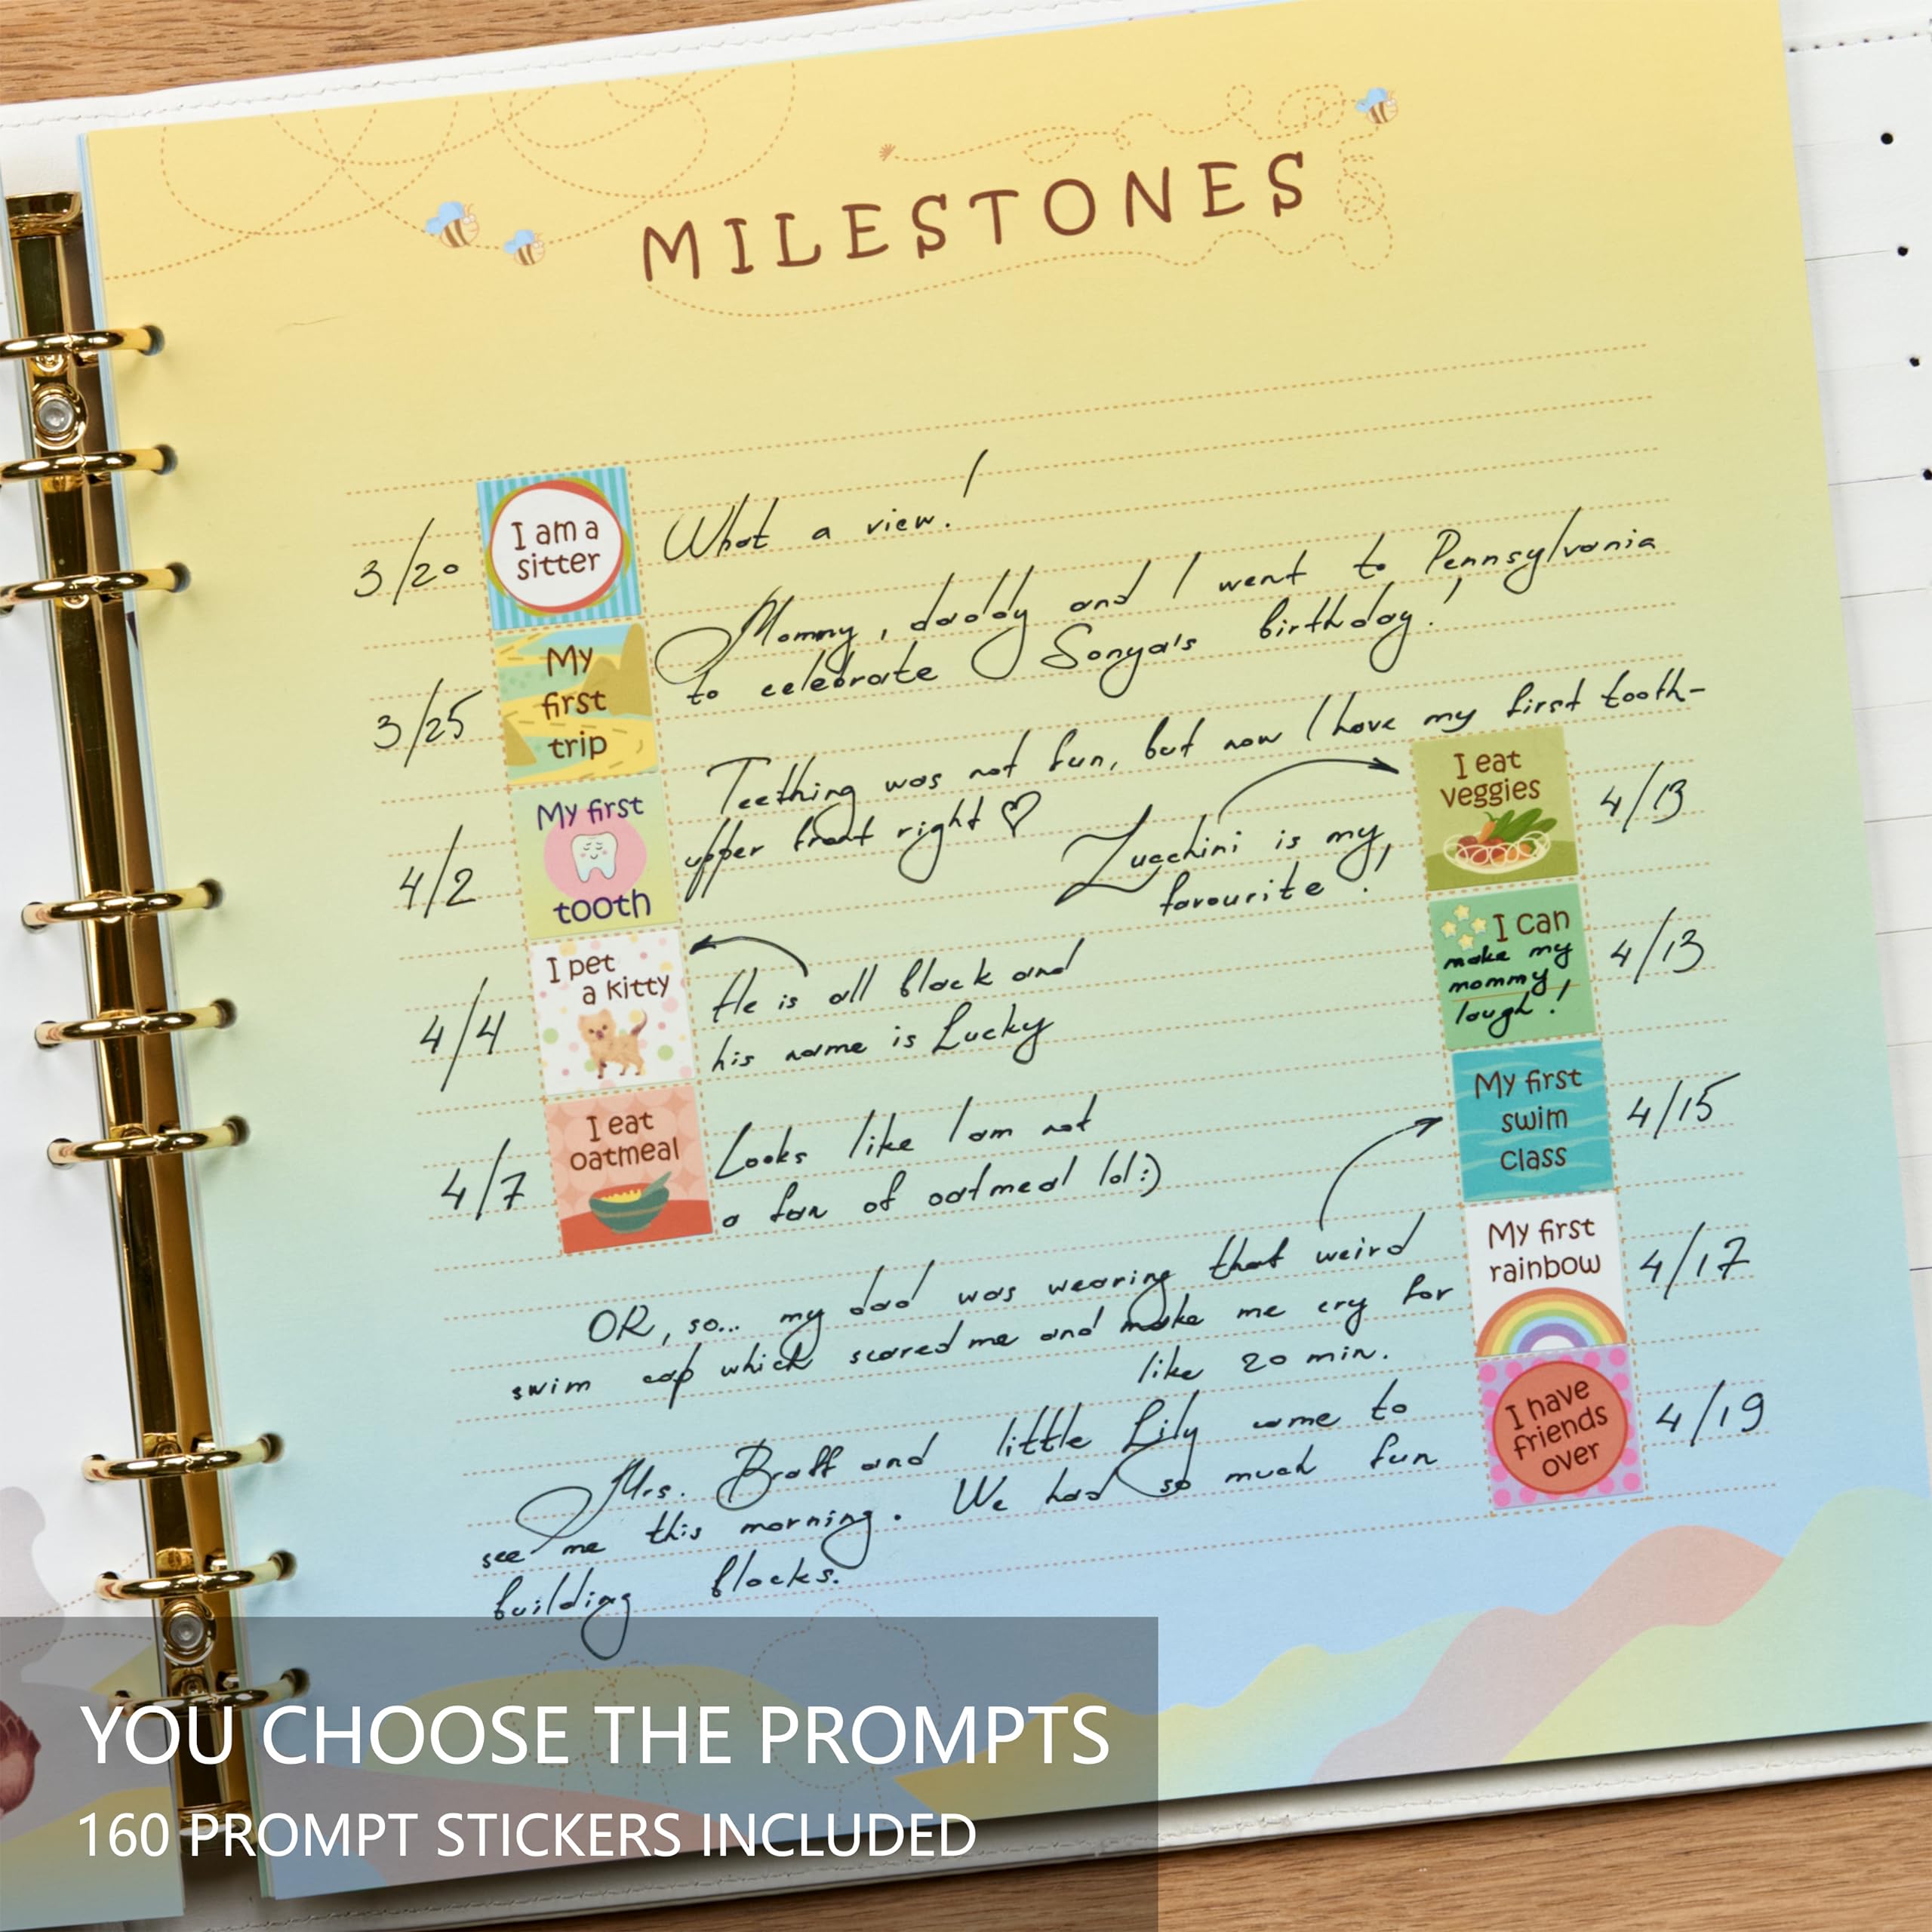 MILESTONES
3/20
I am a
sitter
What a view!
3/25
My
first
trip
Mommy, daddy and I went to Pennsylvania
to celebrate Sonya's birthday!
4/2
My first
tooth
Teething was not fun, but now I have my first tooth-
upper front right ♡
I eat
veggies
4/13
Zucchini is my
favourite!
4/4
I pet
a kitty
He is all black and
his name is Lucky
I can
make my
mommy
laugh!
4/13
4/7
I eat
oatmeal
Looks like I am not
a fan of oatmeal lol:)
My first
swim
class
4/15
OK, so... my dad was wearing that weird
swim cap which scared me and make me cry for
like 20 min.
My first
rainbow
4/17
I have
friends
over
4/19
Mrs. Braff and little Lily came to
see me this morning. We had so much fun
building blocks.
YOU CHOOSE THE PROMPTS
160 PROMPT STICKERS INCLUDED